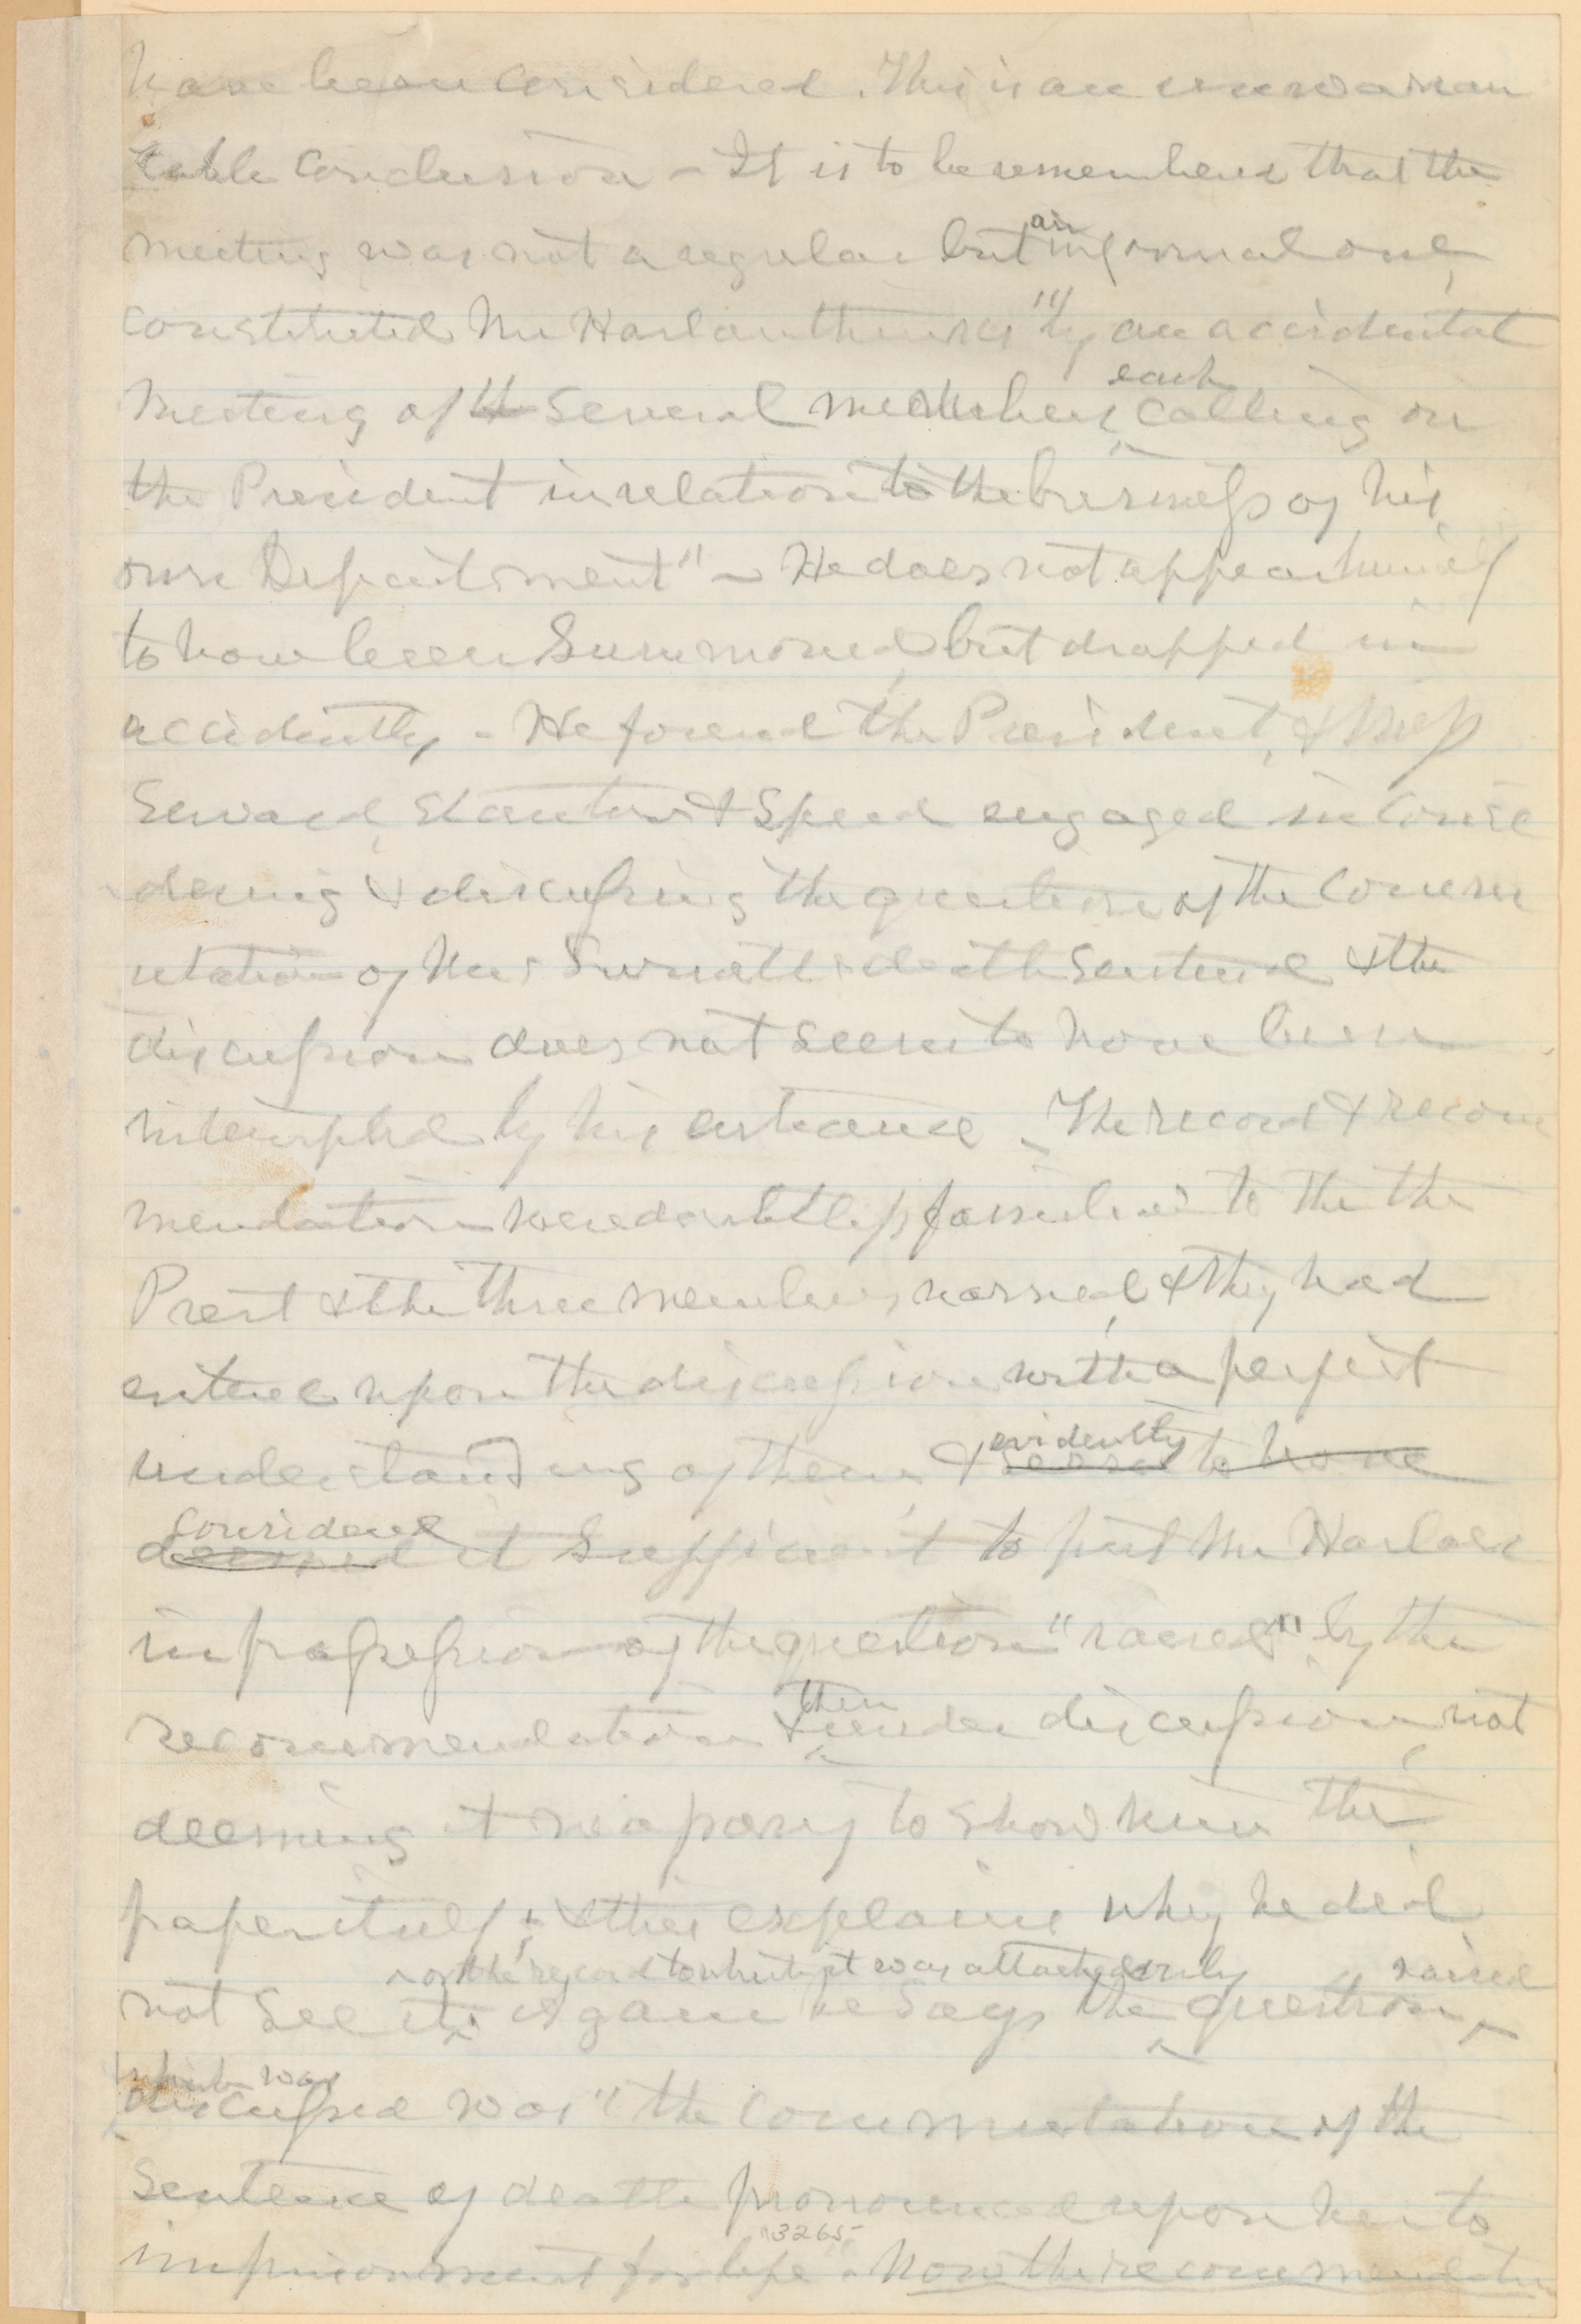 have been considered. This is an unwarran
table conclusion - It is to be remembered that the
meeting was not a regular but an informal one,
constituted Mr Harlan thinks "by an accidental
meeting of several members each calling on
the President in relation to the business of his
own Department" - He does not appear himself
to have been summoned, but dropped in
accidently - He found the President, & Mess
Seward, Stanton & Speed engaged in consi
dering & discussing the question of the commu
tation of Mrs Surratts death sentence & the
discussion does not seem to have been
interrupted by his entrance - The record & recom
mendation were doubtless familiar to the the
Prest & the three members named, & they had
entered upon the discussion with a perfect
understanding of them, & evidently seem to have
considered deemed it sufficient to put Mr Harlan
in possession of the question "raised" by the
recommendation & then under discussion, not
deeming it necessary to show him the
paper itself; & this explains why he did
not see it, or the record to which it was attached. Again he says the only question raised
which was discussed was "the commutation of the
sentence of death pronounced upon her to
imprisonment for life". Now the recommendation
3265